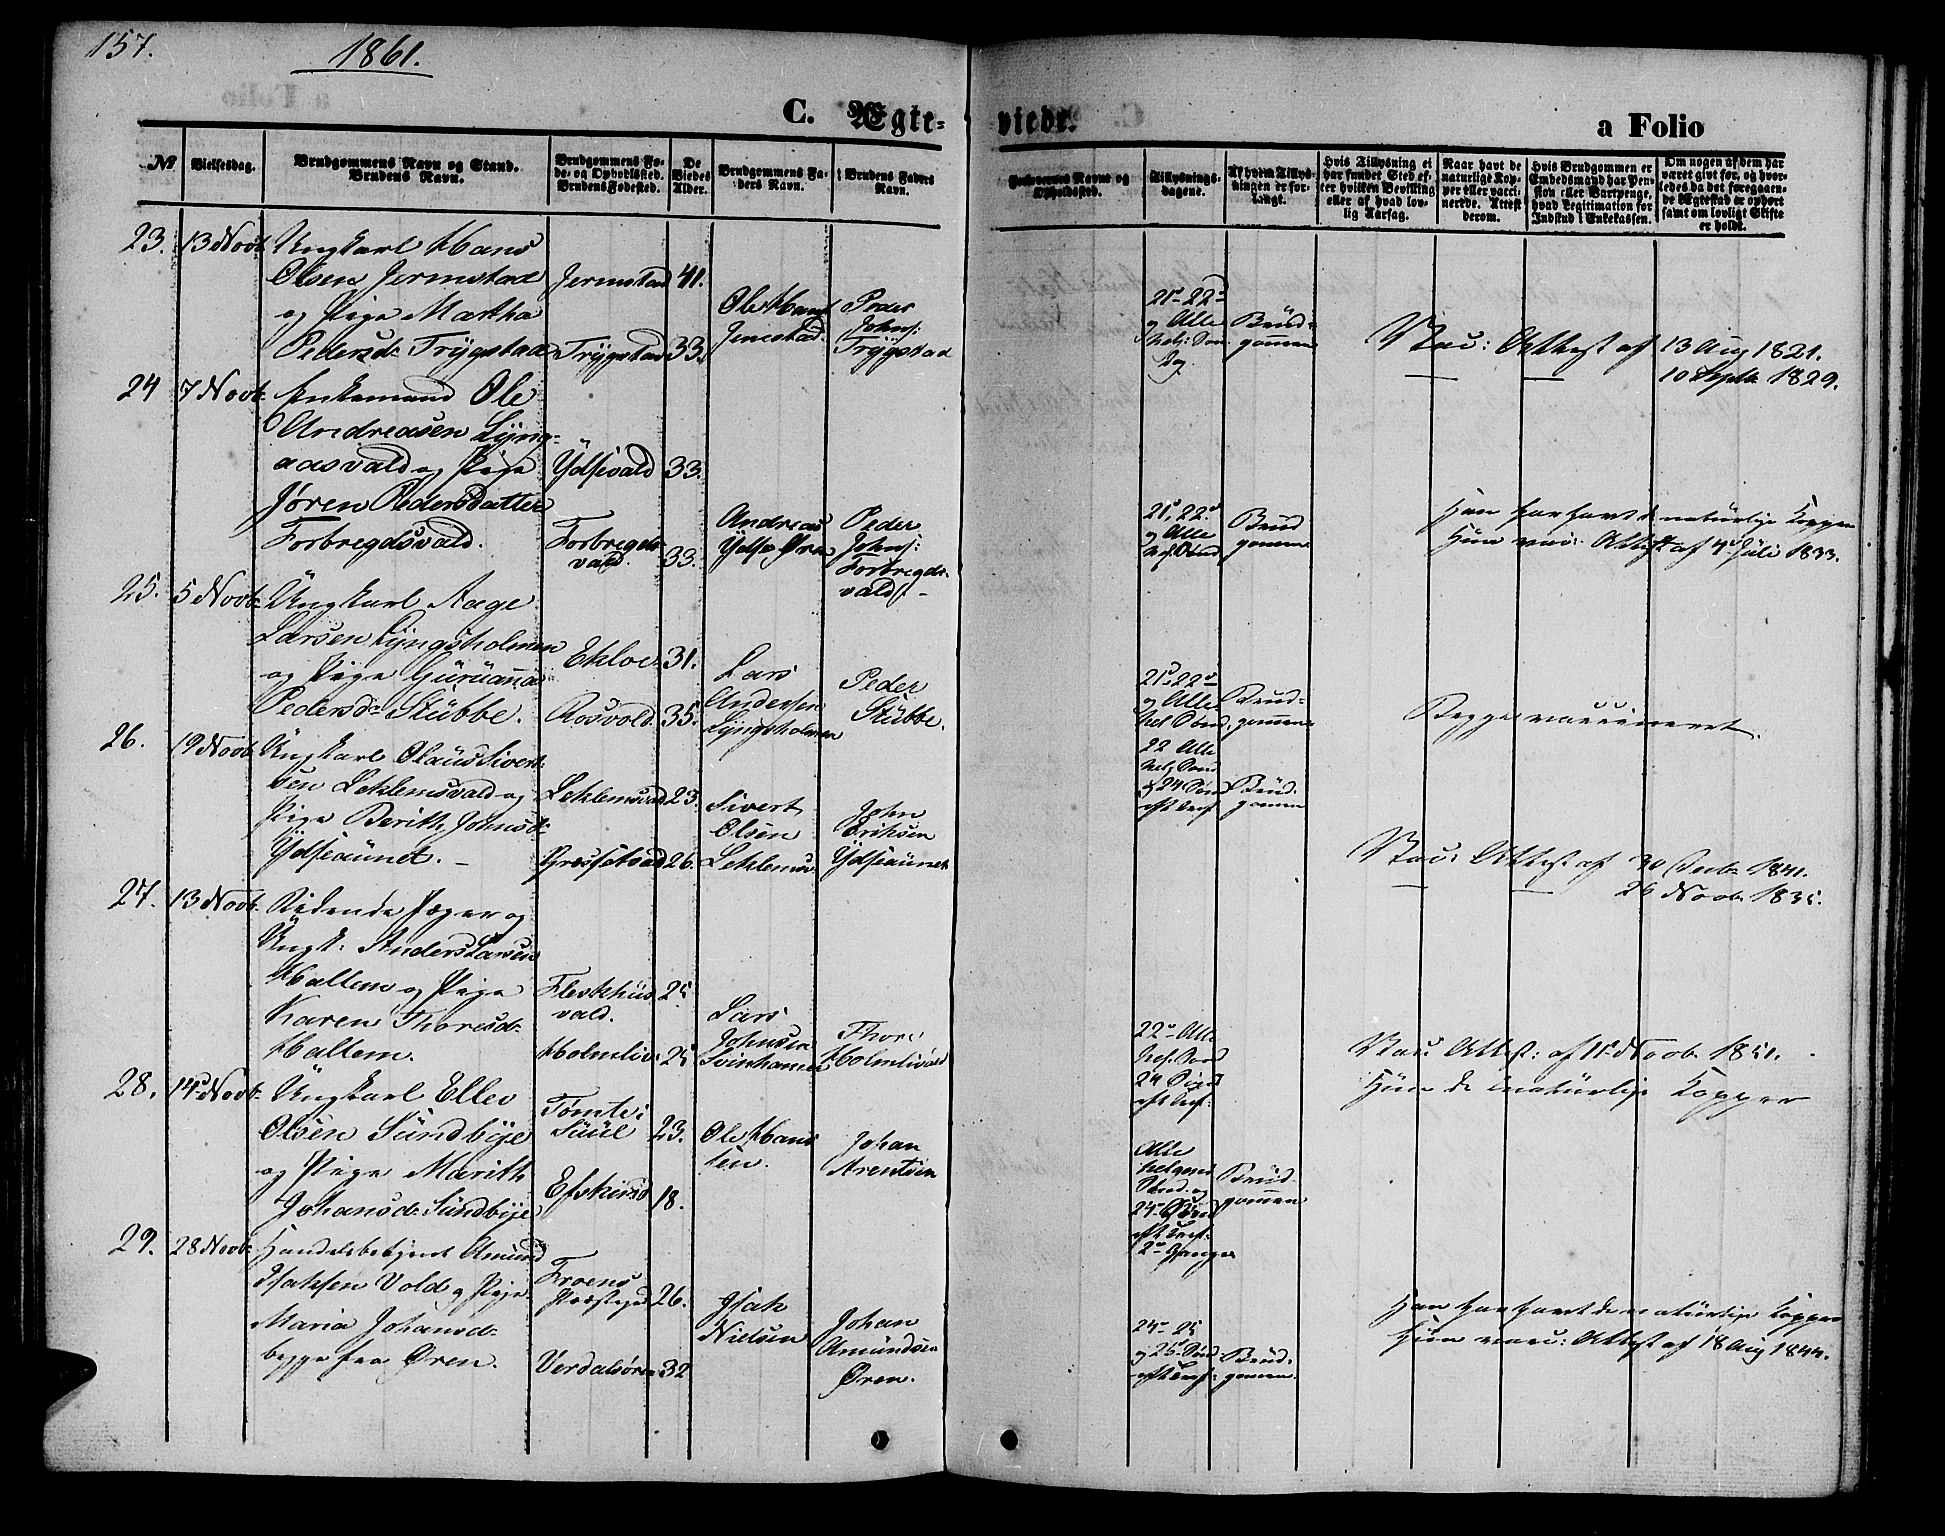 157.
1861.
C. Ægte-
viede.
a Folio
No
Vielsesdag.
Brudgommens Navn og Stand.
Brudens Navn.
Brudgommens Fø-
de- og Opholdssted.
Brudens Fødested.
De
Viedes
Alder.
Brudgommens Fa-
ders Navn.
Brudens Faders
Navn.
Forlovernes Navne og
Opholdssted.
Tillysnings-
dagene.
Af hvem Tillys-
ningen er for-
langt.
Hvis Tillysning ei
har fundet Sted ef-
ter hvilken Bevilling
eller af hvad lov-
lig Aarsag.
Naar havt de
naturlige Kop-
per eller vacci-
nerede. Attest
derom.
Hvis Brudgommen er
Embedsmand har Pen-
sion eller Vartpenge,
hvad Legitimation for
Indskud i Enkekassen.
Om nogen af dem har
været givt før, og hvor-
ledes da det foregaaen-
de Ægteskab er ophørt
samt om lovligt Skifte
er holdt.
23. 13 Novb. Ungkarl Hans
Olsen Jermstad
og Pige Martha
Pedersd: Trygstad
Jermstad 41.
Trygstad 33.
Ole Hans
Peder
Johns:
Trygstad
21 - 22
og Alle
Hel: Søn
Dg
Brud-
gommen
Vac: Attest af 13 Aug 1821.
10 Septb 1829.
24 7 Novb. Enkemand Ole
Andreasen Lyng-
aasvald og Pige
Jøren Pedersdatter
Forbregdsvald.
Ydsevald 33.
Forbregds-
vald. 33.
Andreas
Ydse Øren
Peder
Johns:
Forbregds-
vald
21, 22.
Alle
Brud
gommen
Han har havt de naturlige Kopper
Hun vac: Attest af 4 Juli 1833.
25. 5 Novb. Ungkarl Aage
Larsen Lyngsholmen
og Pige Guruanna
Pedersd: Stubbe.
Ekloe 31.
Aosvold. 35.
Lars
Andersen
Lyngsholmen
Peder
Stubbe.
21 - 22
og Alle
Brud-
gommen
Begge vaccineret.
26. 19 Novb. Ungkarl Olaus Sivert-
sen Leklemsvald og
Pige Berith Johnsd:
Ydseaunet.
Leklemsvad 23.
26.
Sivert
Olsen
Leklemsv
John
Eriksen
Ydseaunet
22 Alle
Hel, Sønd
og 24 Sønd
eft Tref.
Brud-
gommen
Vac: Attest af 30 Octb 1841.
26 Novb. 1835.
27. 13 Novb. Ridende Jæger og
Ungk: Anders Larsen
Hallem og Pige
Karen Thoresd:
Hallem.
Fleskhus
vald. 25
Holmliv: 25
Lars
Johnsen
Svinhamer
Thore
Holmlivald
22 Alle
Hel: Sønd
24 Sønd
eft Tref:
Vac Attest: af 15 Novb. 1851.
Hun de naturlige Kopper
28. 14 Novb. Ungkarl Ellev
Olsen Sundbye
og Pige Marith
Johansd: Sundbye
Tømte i
Suul 23.
18.
Ole Han
sen.
Johan
Arentsen
Alle
helgens
Sønd. og
24 Sønd
eft Tref:
2 Gange
Brud-
gommen
29. 28 Novb. Handelsbetjent Amund
Isaksen Vold og Pige
Maria Johansd:
begge fra Øren.
Froens
Præstegd 26.
Verdalsøren 32
Isak
Nielsen
Johan
Amundsen
Øren.
24 - 25
og 26 Sønd
eft Tref:
Brud-
gommen
Han har havt de naturlige Kopper
Hun vac: Attest af 18 Aug 1844.